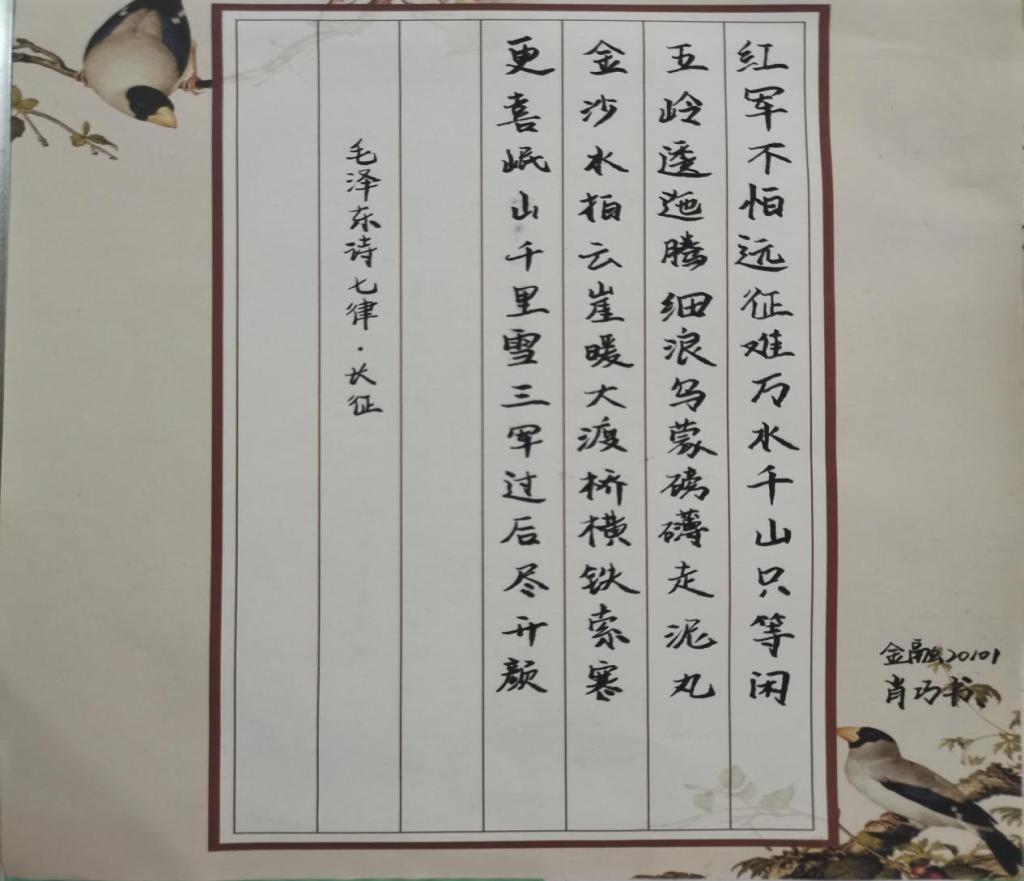 红军不怕远征难万水千山只等闲
五岭逶迤腾细浪乌蒙磅礴走泥丸
金沙水拍云崖暖大渡桥横铁索寒
更喜岷山千里雪三军过后尽开颜
毛泽东诗七律·长征
金融20101
肖巧书